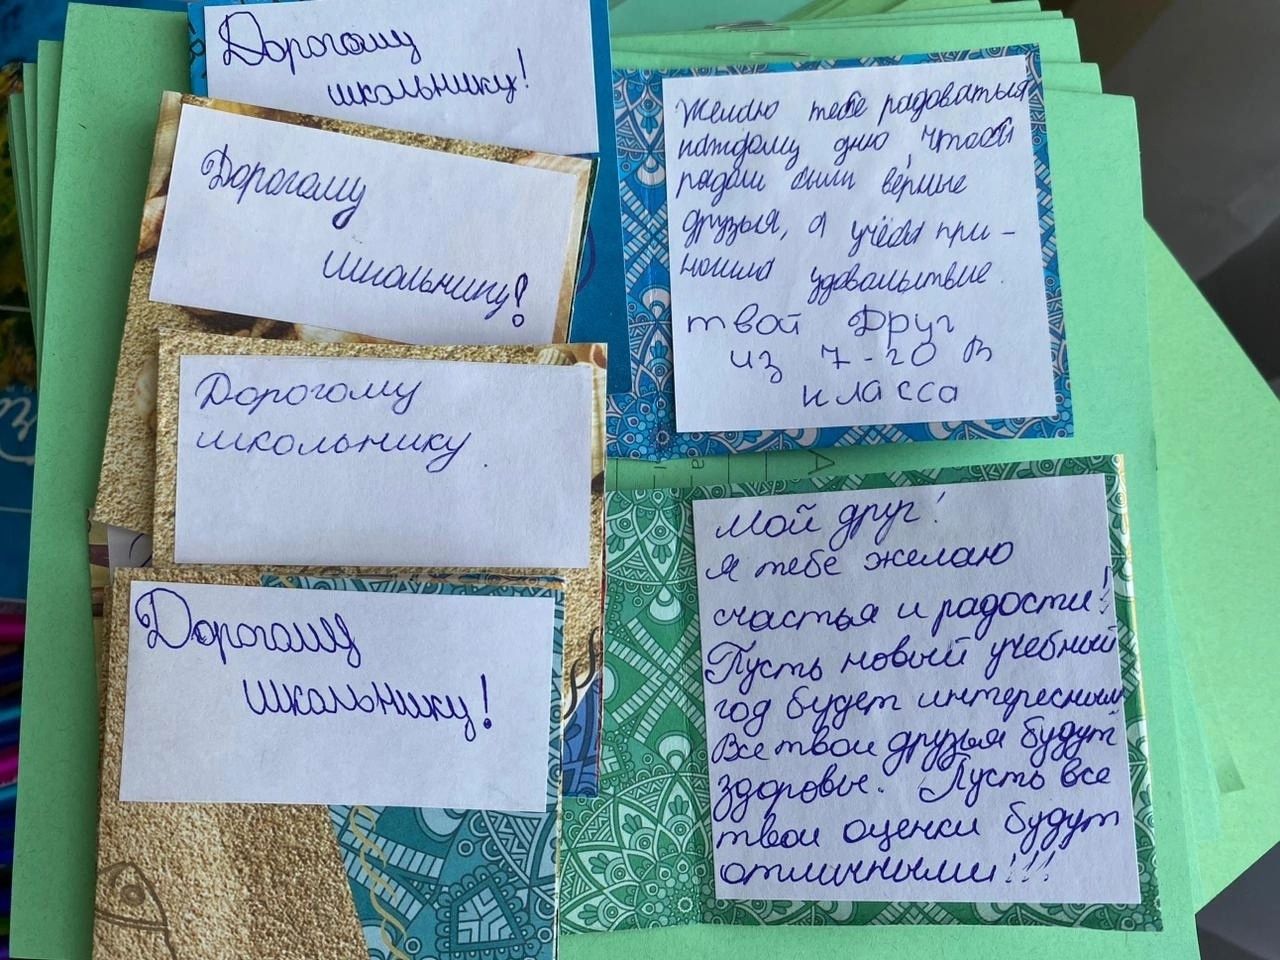 Дорогому
школьнику!
Дорогому
школьнику!
Дорогому
школьнику.
Дорогому
школьнику!
Желаю тебе радоваться
каждому дню, чтобы
рядом были верные
друзья, а учёба при-
носила удовольствие.
твой Друг
из 7-го В
класса
Мой друг!
Я тебе желаю
счастья и радости!
Пусть новый учебный
год будет интересным
Все твои друзья будут
здоровы. Пусть все
твои оценки будут
отличными!!!